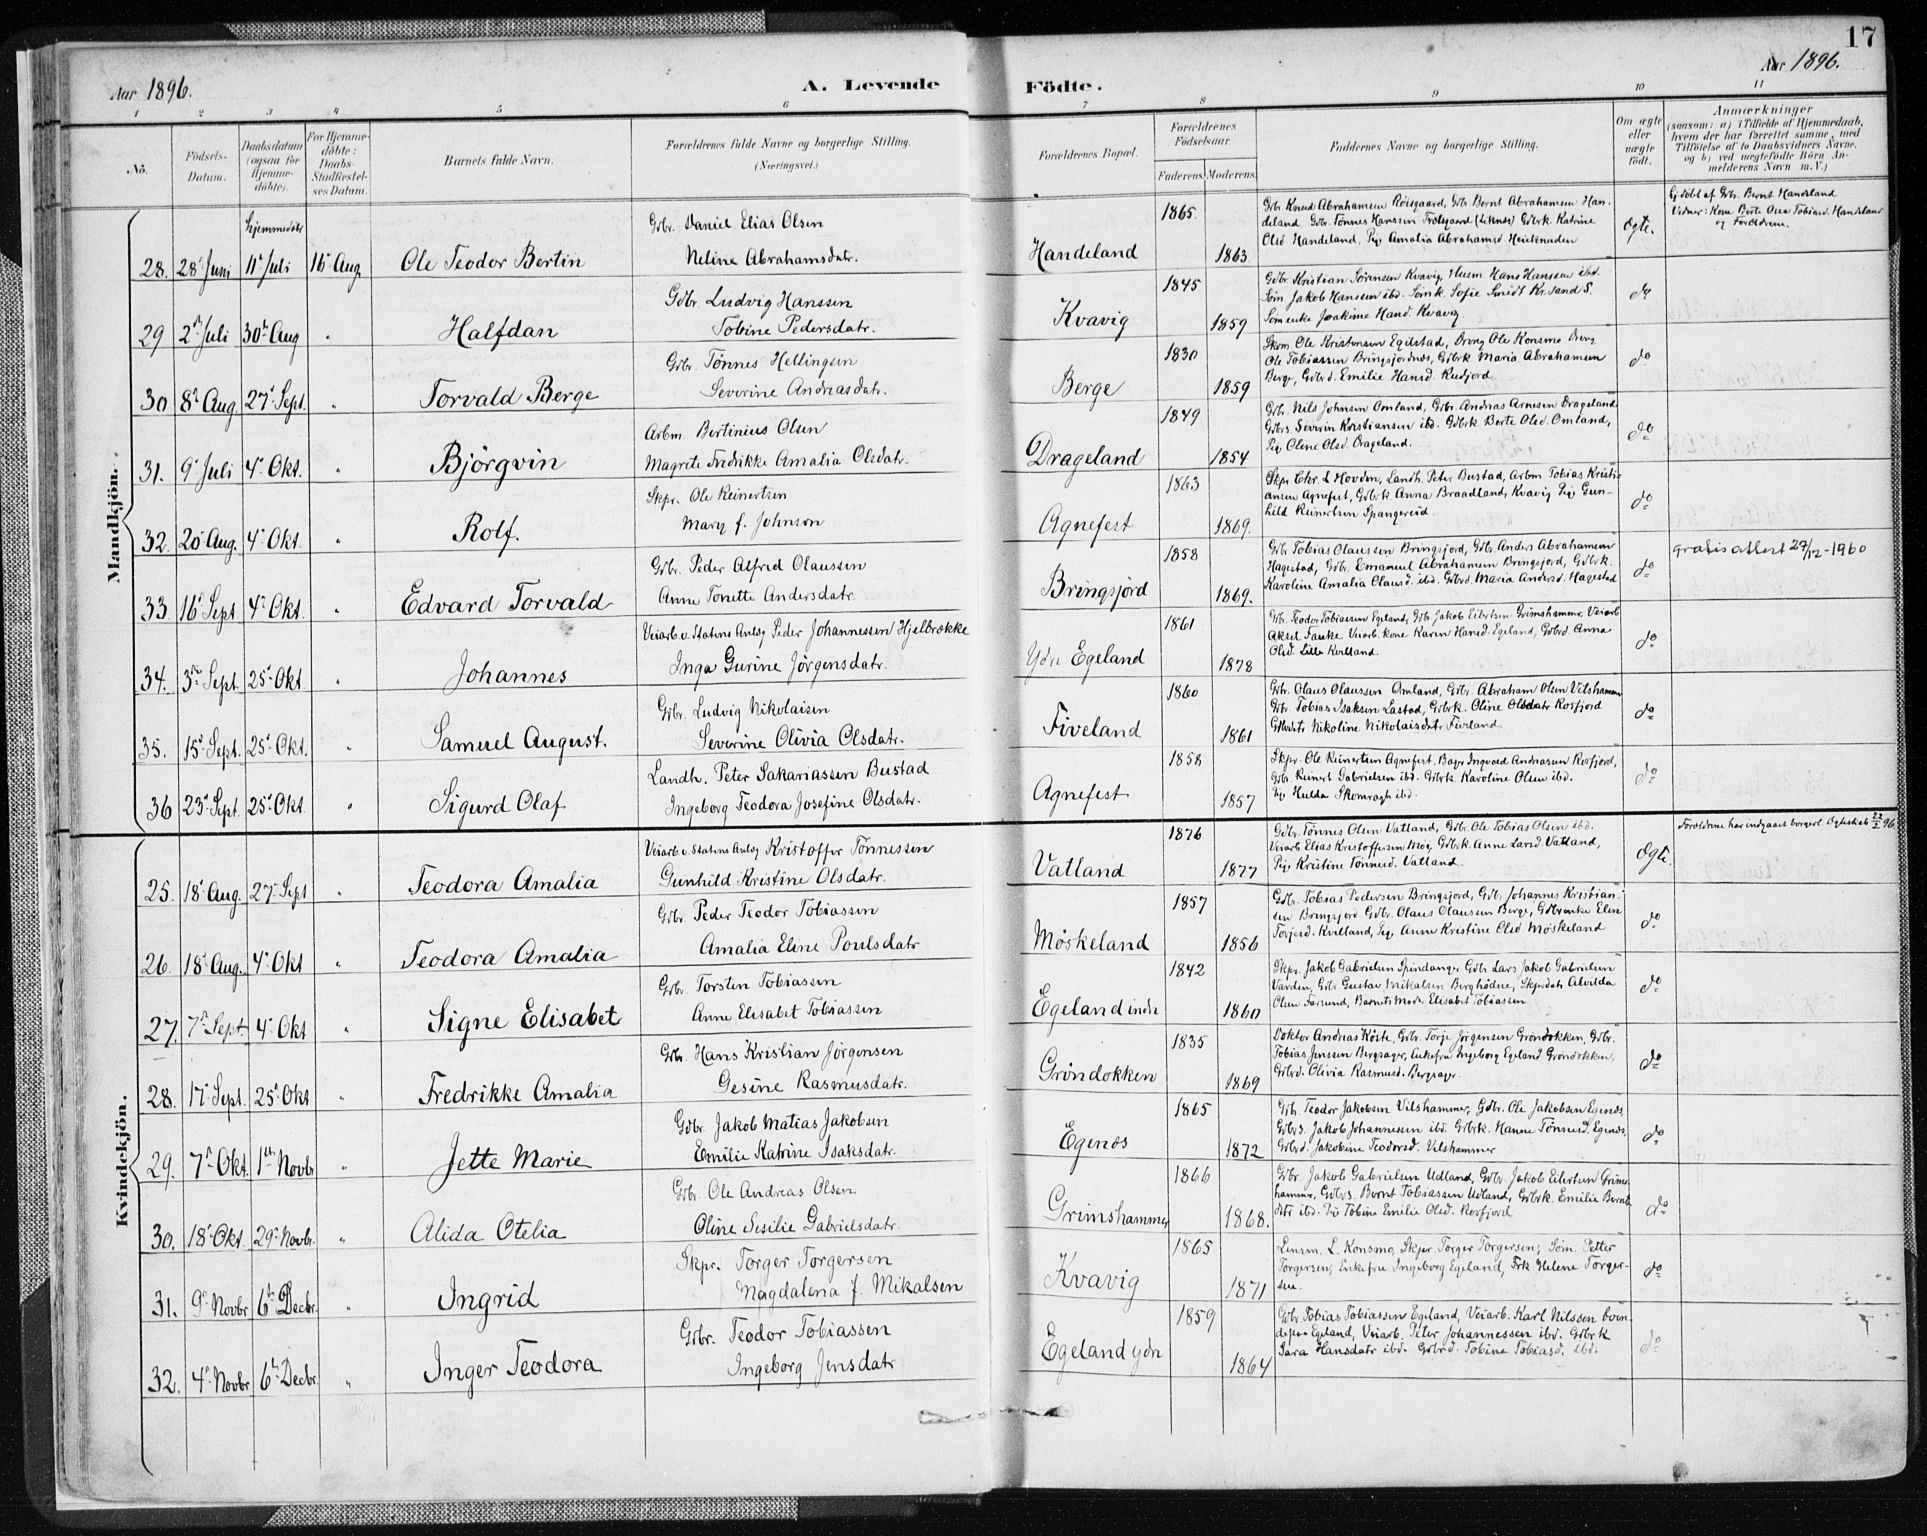 17
Aar 1896.
A. Levende Födte.
Aar 1896.
1 2 3 4 5 6 7 8 9 10 11
No.
Födsels-
Datum.
Daabsdatum
(ogsaa for
Hjemme-
döbte).
For Hjemme-
döbte:
Daabs-
Stadfæstel-
ses Datum.
Barnets fulde Navn.
Forældrenes fulde Navne og borgerlige Stilling.
(Næringsvei.)
Forældrenes Bopæl.
Forældrenes
Födselsaar.
Faderens. Moderens.
Faddernes Navne og borgerlige Stilling.
Om ægte
eller
uægte
födt.
Anmærkninger
(saasom: a) i Tilfælde af Hjemmedaab,
hvem der har forrettet samme, med
Tilföielse af to Daabsvidners Navne,
og b) ved uægtefödte Börn An-
melderens Navn m. V.)
Mandkjön.
Hjemmedöbt
28. 28 Juni 11 Juli 16 Aug Ole Teodor Bertin
Gbr. Daniel Elias Olsen
Neline Abrahamsdatr.
Handeland 1865. 1863.
Gbr. Knud Abrahamsen Röisgaard, Gbr Bernt Abrahamsen Han-
deland Gbr. Tönnes Hanssen Trölsgaard (Leknes) Gdbrk. Katrine
Olsd Handeland, Pige Amalia Abrahamsd Heieknuden
Ægte.
Gj. döbt af Gbr. Bernt Handeland
Vidner: Kone Berte Osea Tobiasd. Handeland
og Forældrene.
29 2 Juli 30 Aug " Halfdan
Gdbr. Ludvig Hanssen
Tobine Pedersdatr.
Kvavig 1845 1859
Gdbr. Kristian Sörensen Kvavig, Husm. Hans Hanssen ibd.
Söm Jakob Hanssen ibd. Sömk. Sofie Smidt Kr.sand S.
Sömenke Joakime Hansd. Kvavig.
do
30 8 Aug. 27 Sept. " Torvald Berge
Gdbr. Tönnes Hellingsen
Severine Andreasdatr.
Berge 1830 1859
Skom. Ole Kristensen Egilstad, Dreng Ole Konsmo Dreng
Ole Tobiassen Bringsjordnes, Gdbrk Maria Abrahamsen
Berge, Gdbrd. Emilie Hansd. Rudjord
do
31. 9 Juli 4 Okt. " Björgvin
Arbm. Bertinius Olsen
Magrete Fredrikke Amalia Olsdatr.
Drageland 1849 1854
Gdbr. Nils Johnsen Omland, Gdbr. Andreas Arnesen Drageland
Gdbrs. Severin Kristiansen ibd. Gdbrk. Berte Olsd. Omland,
Pig Olene Olsd. Drageland.
do
32. 20 Aug. 4 Okt. " Rolf.
Skpr. Ole Reinertsen
Mary f. Johnson
Agnefest 1863 1869.
Skpr Chr. L Hovden, Landh. Peter Bustad, Arbm Tobias Kristi-
ansen Agnefest, Gdbrk Anna Braadland, Kvavig Pige Gun-
hild Reinertsen Spangereid.
do
33. 16 Sept 4 Okt. " Edvard Torvald
Gdbr. Peder Alfred Olaussen
Anne Tonette Andersdatr.
Bringsjörd 1858 1869.
Gdbr Tobias Olaussen Bringsjord, Gdbr. Anders Abrahamsen
Hagestad, Gdbr. Emanuel Abrahamsen Bringsjord, Gdbrk.
Karoline Amalia Olausd. ibd. Gdbrd. Maria Andersd. Hagestad
do
gratis attest 27/12-1960
34. 3 Sept. 25 Okt. " Johannes
Veiarb. v. Statens Anlæg Peder Johannessen Hjelbrække
Inga Gurine Jörgensdatr.
Ydre Egeland 1861 1878
Gbr. Teodor Tobiassen Egeland, Gdbr Jakob Eilertsen Grimshammer, Veiarb
Aksel Fauke Veiarb. kone Karen Hansd. Egeland, Gdbrd. Anna
Olsd. Lille Kvilland.
do
35. 15 Sept. 25 Okt. " Samuel August.
Gdbr. Ludvig Nikolaisen
Severine Olivia Olsdatr.
Fiveland 1860 1861
Gbr. Olaus Olaussen Omland, Gdbr. Abraham Olsen Vilshammer
Gdbr. Tobias Isaksen Lastad, Gdbrk. Oline Olsdatr Rosfjord
Nikoline Nikolaisdatr Fivland
do
36 23 Sept. 25 Okt. " Sigurd Olaf
Landh. Peter Sakariassen Bustad
Ingeborg Teodora Josefine Olsdatr.
Agnefest 1858 1857
Skpr. Ole Reinertsen Agnefest. Bager Ingvald Andreassen Rosfjord,
Gdbr. Reinert Gabrielsen ibd. Gdbrk Karoline Olsen ibd.
Pige Hulda Skomragh ibd.
do
Kvindekjön.
25. 18 Aug. 27 Sept " Teodora Amalia
Veiarb. v. Statens Anlæg Kristoffer Tönnessen
Gunhild Kristine Olsdatr.
Vatland 1876 1877
Gdbr. Tönnes Olsen Vatland, Gdbr. Ole Tobias Olsen ibd.
Veiarb Elias Kristoffersen Möy, Gdbrk. Anne Larsd. Vatland,
Pige Kristine Tönnesd. Vatland.
Ægte.
Forældrene har indgaaet borgerl. Ægteskab 22/2 96
26. 18 Aug. 4 Okt " Teodora Amalia
Gdbr. Peder Teodor Tobiassen
Amalia Eline Poulsdatr
Möskeland 1857 1856
Gdbr. Tobias Pedersen Bringsjord, Gdbr Johannes Kristian-
sen Bringsjord Gdbr. Olaus Olaussen Berge, Gdbrenke Elen
Torjersd. Kvilland, Pige Anne Kristine Olsd. Möskeland
do.
27. 7 Sept. 4 Okt " Signe Elisabet
Gdbr. Torsten Tobiassen
Anne Elisabet Tobiassen
Egeland indre 1842 1860
Skpr. Jakob Gabrielsen Spindanger Gdbr Lars Jakob Gabrielsen
Varden, Gdbr Gustav Mikalsen Berghödne, Skprdatr Alvilda
Olsen Farsund, Barnets Moder Elisabet Tobiassen
do
28. 17 Sept. 25 Okt " Fredrikke Amalia
Gdbr. Hans Kristian Jörgensen
Gesine Rasmusdatr.
Gröndokken 1835 1869
Doktor Andreas Röste, Gdbr. Torje Jörgensen Gröndokken, Gdbr.
Tobias Jenssen Bergsager, Enkefru Ingeborg Egeland Gröndokken,
Gdbrd. Olivia Rasmusd. Bergsager.
do
29. 7 Okt. 1 Novbr " Jette Marie
Gdbr. Jakob Matias Jakobsen
Emilie Katrine Isaksdatr.
Egenæs 1865 1872
Gdbr. Teodor Jakobsen Vilshammer, Gdbr. Ole Jakobsen Egenæs,
Gdbrs. Jakob Johannessen ibd. Gdbrk. Hanne Tönnesd. Egenæs,
Gdbrd. Jakobine Teodorsd. Vilshammer
do
30. 18 Okt. 29 Novbr. " Alida Otelia
Gdbr. Ole Andreas Olsen
Oline Sesilie Gabrielsdatr.
Grimshammer 1866 1868.
Gdbr. Jakob Gabrielsen Udland, Gdbr Jakob Eilertsen Grims-
hammer, Gdbrs. Bernt Tobiassen Udland, Gdbrk. Emilie Bernts-
datr ibd. Pige Tobine Emilie Olsd. Rosfjord
do
31. 9 Novbr 6 Decbr. " Ingrid
Skpr. Torger Torgersen
Magdalena f. Mikalsen
Kvavig 1865 1871
Lensm. L. Konsmo, Skpr. Torger Torgersen, Söm. Petter
Torgersen, Enkefru Ingeborg Egeland, Frk Helene Torger-
sen.
do
32. 4 Novbr 6 Decbr. " Inger Teodora
Gdbr. Teodor Tobiassen
Ingeborg Jensdatr
Egeland ydre 1859 1864
Gdbr. Tobias Tobiassen Egeland, Veiarb. Karl Nilssen boen-
de paa Egeland, Veiarb. Peter Johannessen ibd. Gdbrk
Sara Hansdatr ibd. Gdbrd. Tobine Tobiasd. ibd.
do